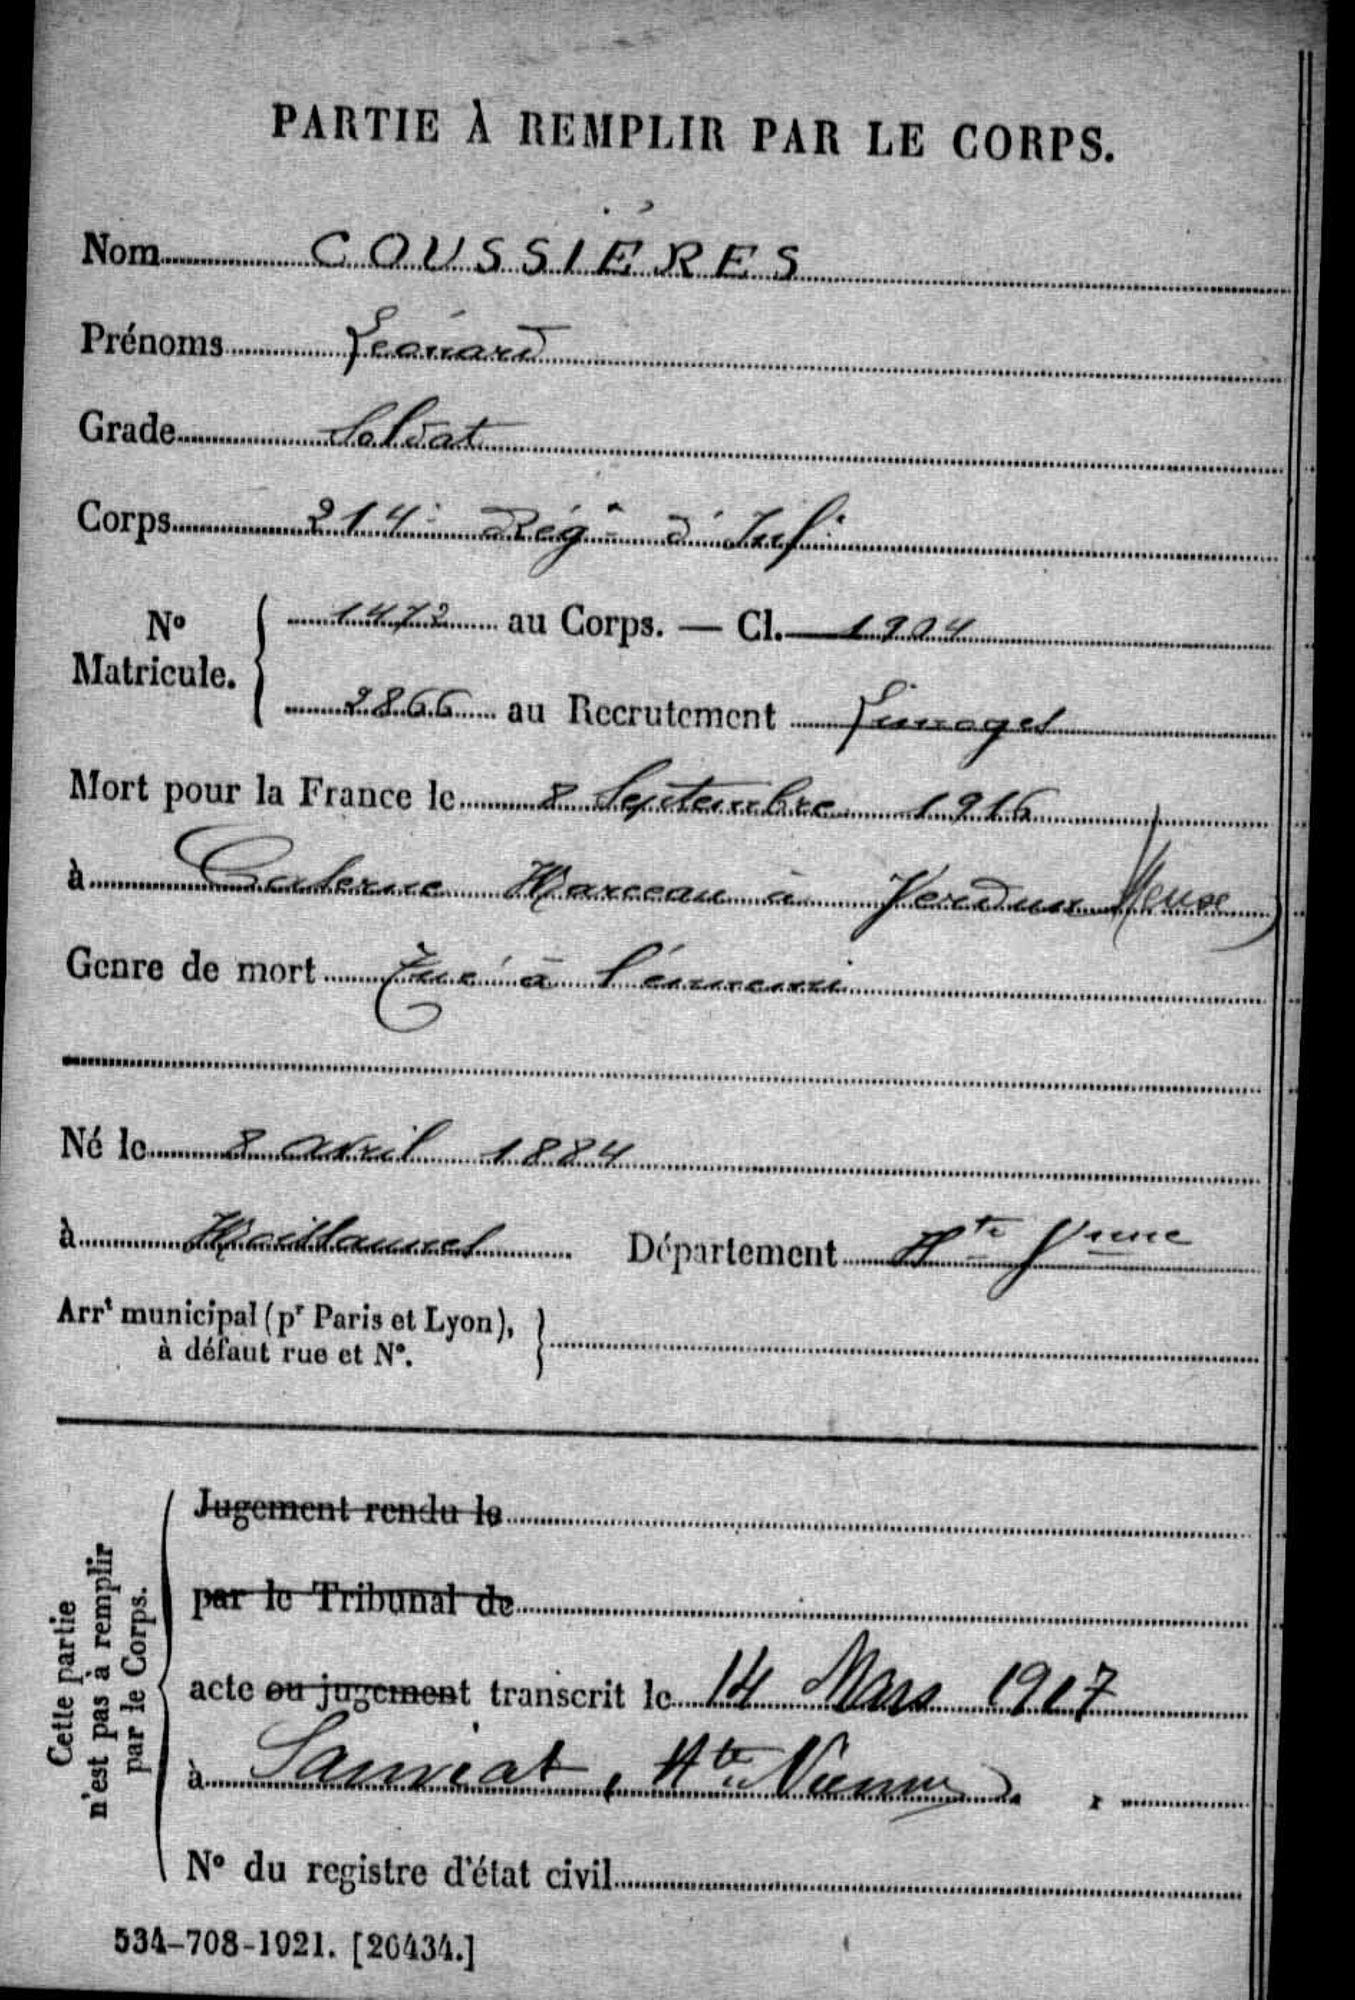 PARTIE À REMPLIR PAR LE CORPS.
Nom COUSSIÈRES
Prénoms Léonard
Grade Soldat
Corps 214e Régt d'Inf.
No Matricule. { 1472 au Corps. — Cl. 1904
2866 au Recrutement Limoges
Mort pour la France le 8 Septembre 1916
à Caserne Marceau à Verdun Meuse
Genre de mort Tué à l'énnemi
Né le 8 avril 1884
à Département Hte Vienne
Arrt municipal (pr Paris et Lyon),
à défaut rue et No.
Cette partie
n'est pas à remplir
par le Corps.
Jugement rendu le
par le Tribunal de
acte ou jugement transcrit le 14 Mars 1917
à Sauviat, Hte Vienne
No du registre d'état civil
534-708-1921. [26434.]